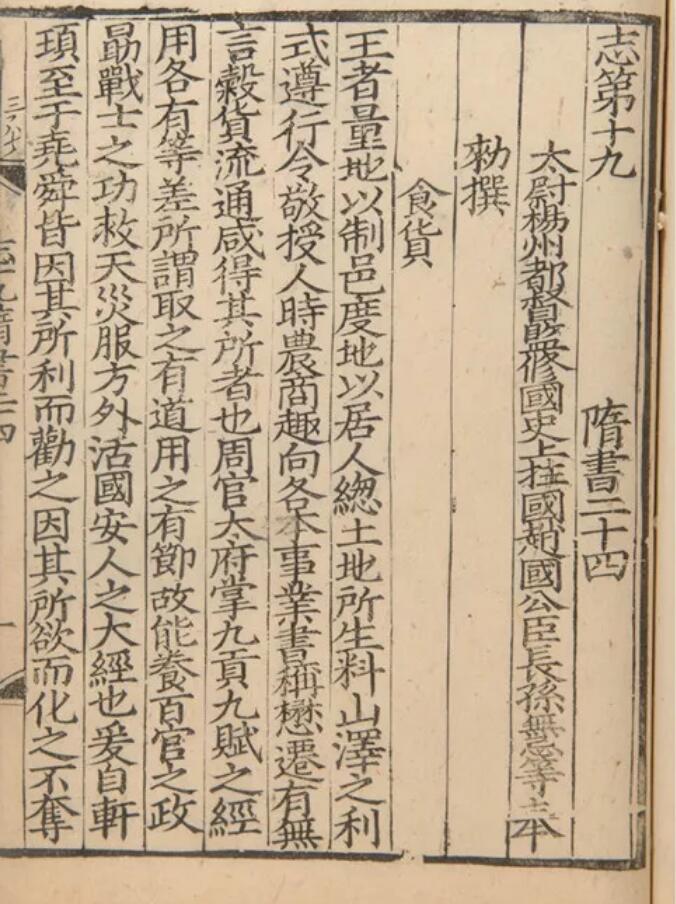 志第十九　隋書二十四
太尉楊州都督監修國史上柱國趙國公臣長孫無忌等奉
勑撰
食貨
王者量地以制邑度地以居人緫土地所生料山澤之利
式遵行令敬授人時農商趣向各本事業書稱懋遷有無
言穀貨流通咸得其所者也周官太府掌九貢九賦之經
用各有等差所謂取之有道用之有節故能養百官之政
勗戰士之功救天災服方外活國安人之大經也爰自軒
頊至于堯舜皆因其所利而勸之因其所欲而化之不奪